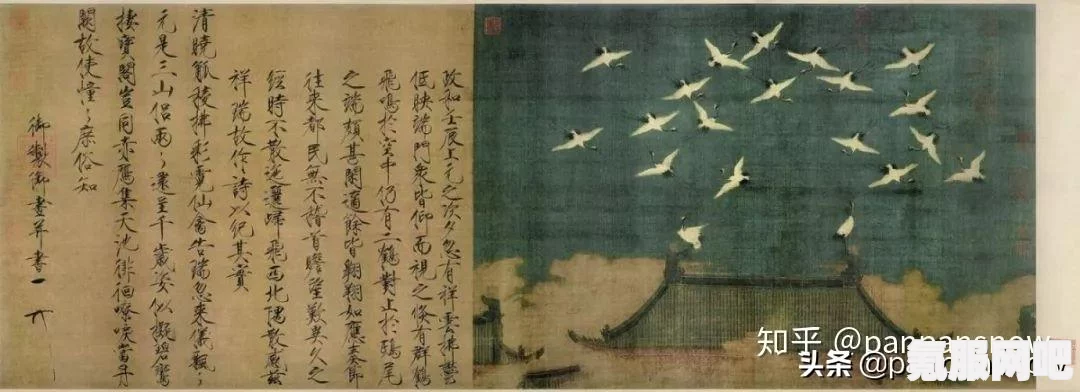 政和壬辰上元之次夕忽有祥雲拂鬱
低映端門衆皆仰而視之倏有群鶴
飛鳴於空中仍有二鶴對止於鴟尾
之端頗甚閑適餘皆翱翔如應奏節
往來都民無不稽首瞻望歎異久之
經時不散迤邐歸飛西北隅散感茲
祥瑞故作詩以紀其實
清曉觚稜拂彩霓仙禽告瑞忽來儀飄〻
元是三山侶兩〻還呈千歲姿似擬碧鸞
棲寶閣豈同赤鴈集天池徘徊嘹唳當丹
闕故使憧〻庶俗知
御製御畫并書
知乎 @panpansnow
头条 @p
氪服网吧